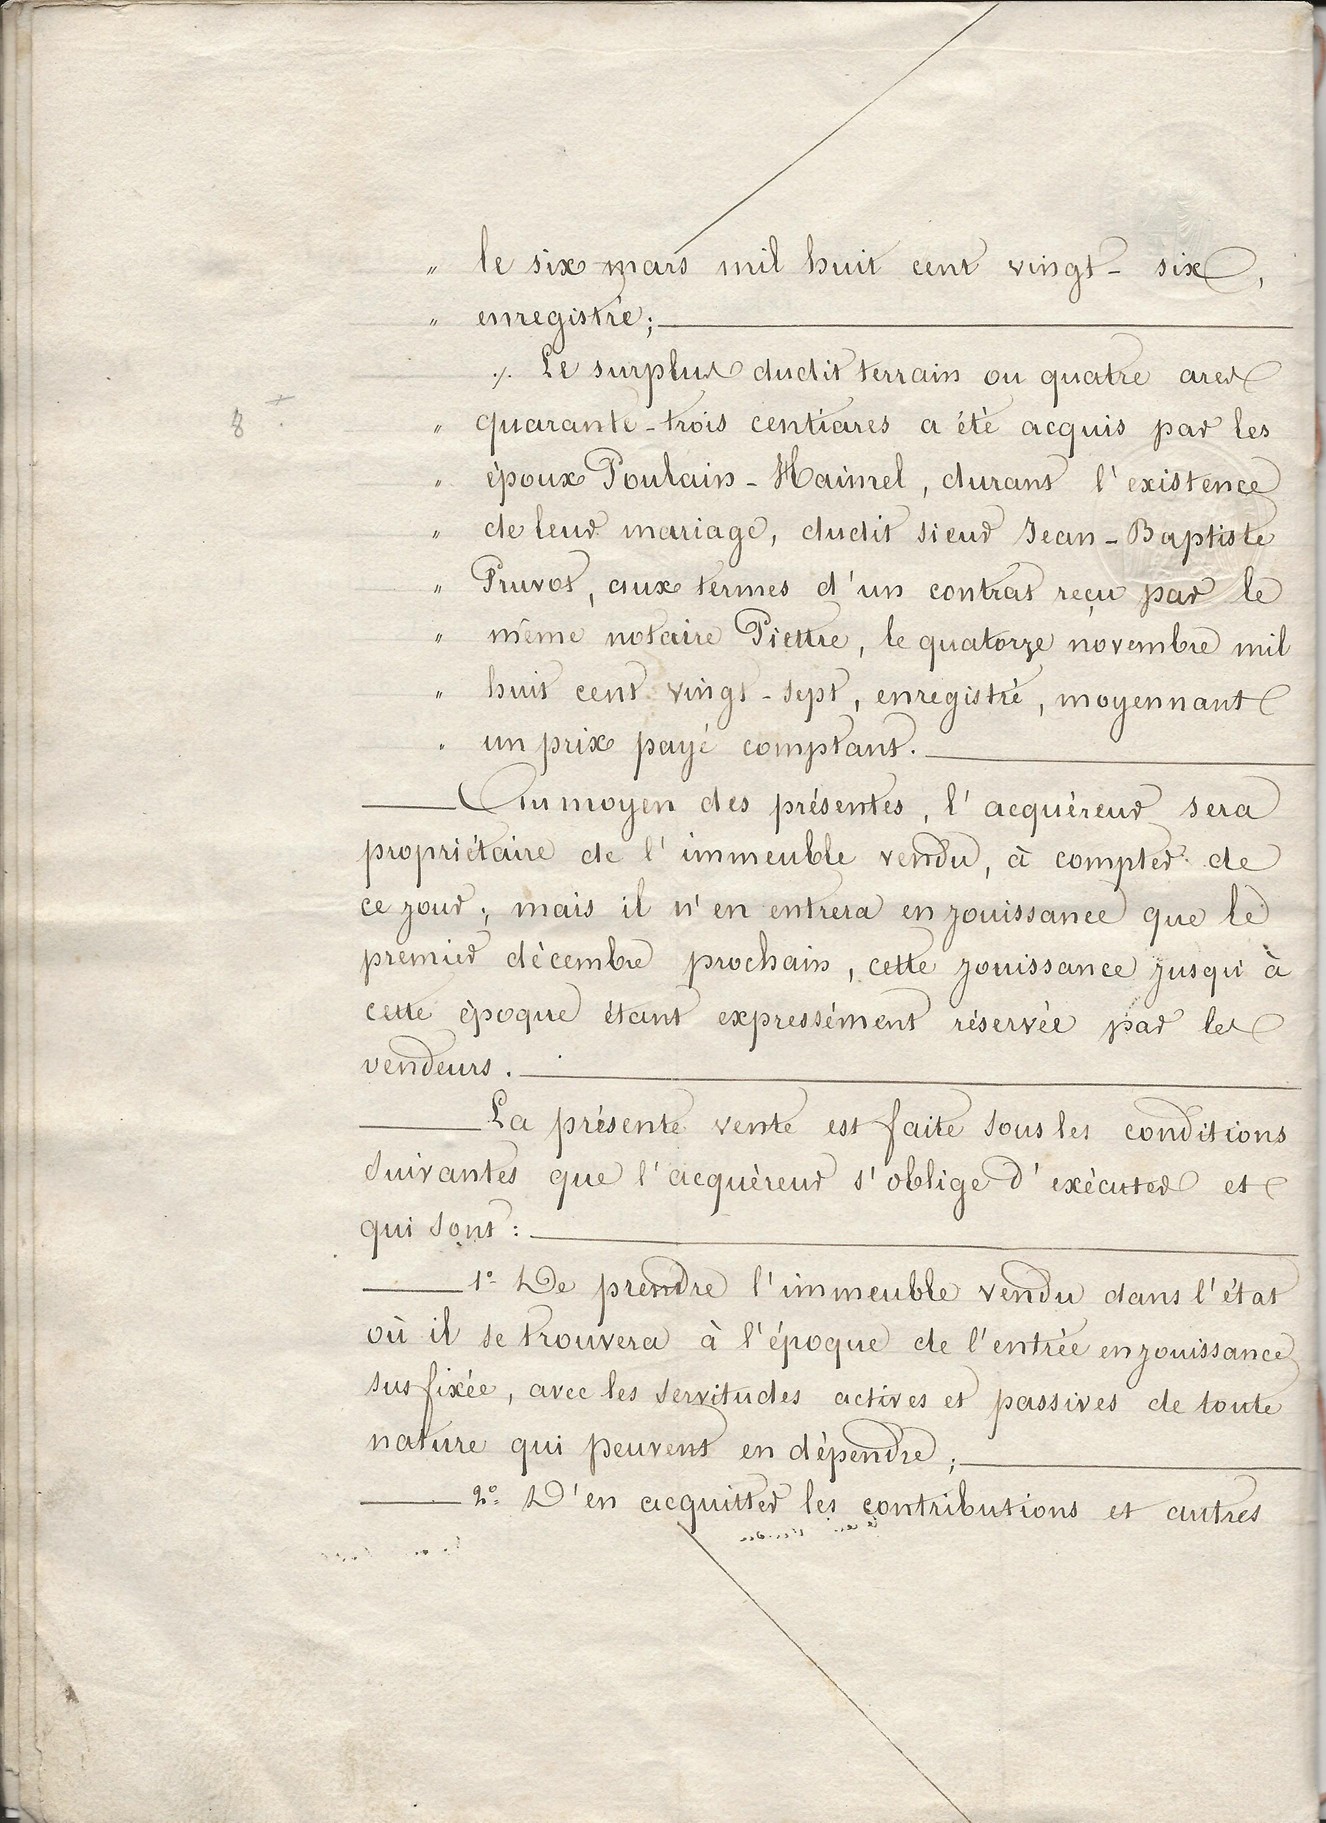 " le six mars mil huit cent vingt-six,
" enregistré;
./. Le surplus dudit terrain ou quatre ares
8 " quarante-trois centiares a été acquis par les
" époux Poulain-Haimel, durant l'existence
" de leur mariage, dudit sieur Jean-Baptiste
" Pruvot, aux termes d'un contrat reçu par le
" même notaire Piettre, le quatorze novembre mil
" huit cent vingt-sept, enregistré, moyennant
" un prix payé comptant.
Au moyen des présentes, l'acquéreur sera
propriétaire de l'immeuble vendu, à compter de
ce jour; mais il n'en entrera en jouissance que le
premier décembre prochain, cette jouissance jusqu'à
cette époque étant expressément réservée par les
vendeurs.
La présente vente est faite sous les conditions
suivantes que l'acquéreur s'oblige d'exécuter et
qui sont:
1º De prendre l'immeuble vendu dans l'état
où il se trouvera à l'époque de l'entrée en jouissance
sus fixée, avec les servitudes actives et passives de toute
nature qui peuvent en dépendre;
2º D'en acquitter les contributions et autres